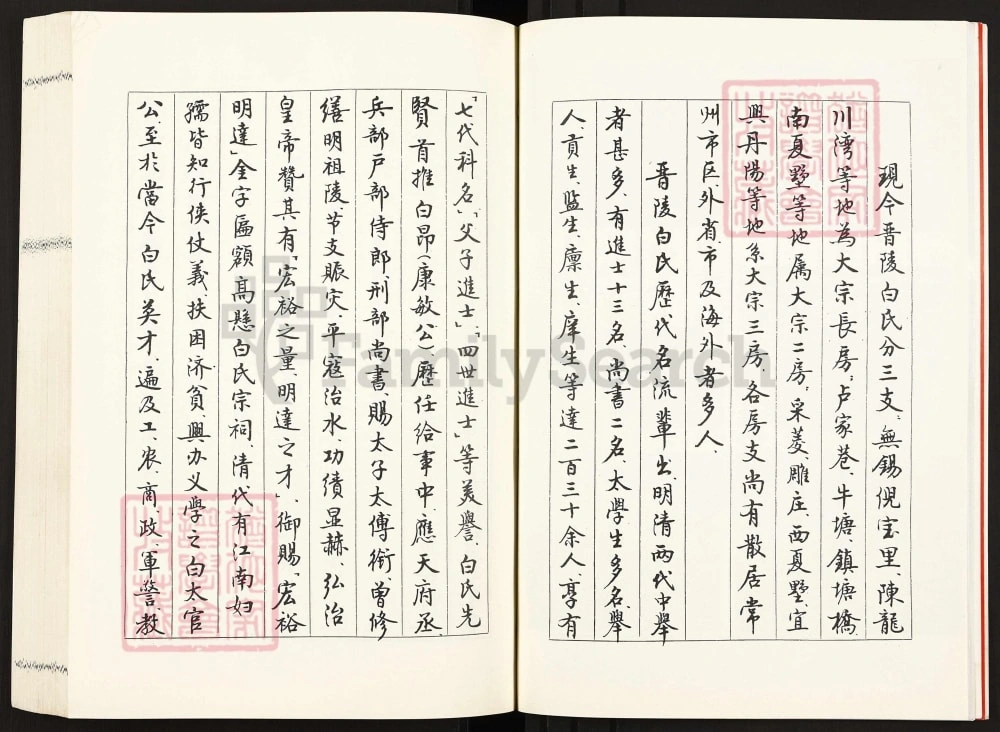 現今晋陵白氏分三支、無錫倪宝里、陳龍
川湾等地為大宗長房，卢家巷、牛塘鎮塘橋、
南夏墅等地属大宗二房，采菱、雕庄、西夏墅、宜
興丹陽等地系大宗三房，各房支尚有散居常
州市区、外省、市及海外者多人、
晋陵白氏歷代名流輩出、明清两代中舉
者甚多、有進士十三名、尚書二名、太學生多名、舉
人、貢生、監生、廪生、庠生等達二百三十余人、享有
「七代科名」、「父子進士」、「四世進士」等美譽、白氏先
賢首推白昂（康敏公）歷任給事中、應天府丞、
兵部戸部侍郎、刑部尚書、賜太子太傅銜、曾修
缮明祖陵、节支賑灾、平寇治水、功績显赫、弘治
皇帝贊其有「宏裕之量、明達之才」、御賜、宏裕
明達」金字匾額高懸白氏宗祠、清代有江南妇
孺皆知行侠仗義、扶困济貧、興办义學之白太官
公、至於當今白氏英才、遍及工、农、商、政、軍警、教
FamilySearch